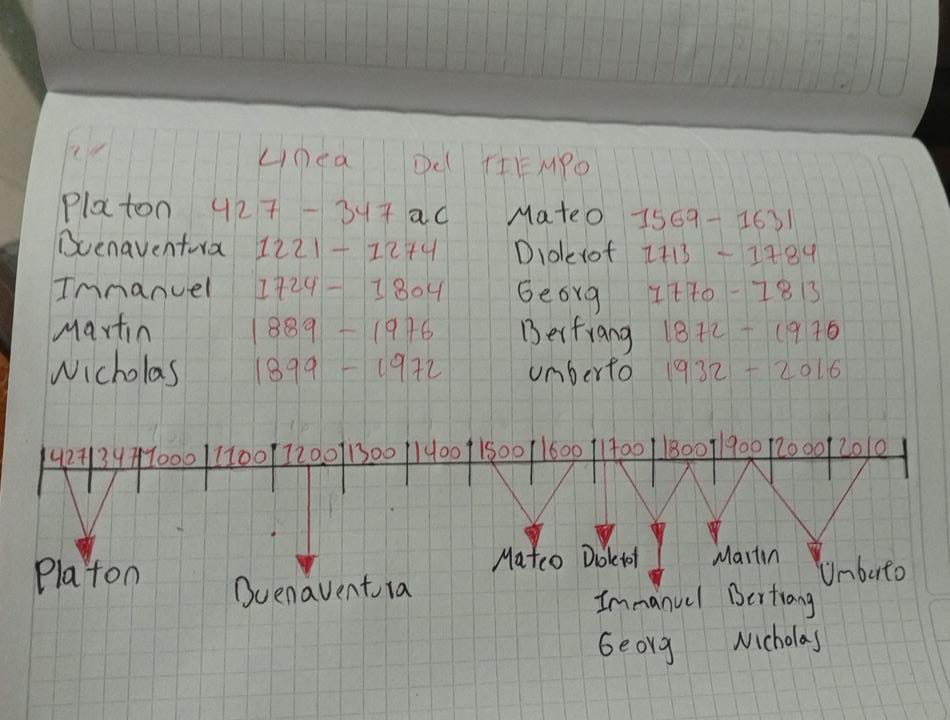 Linea Del TIEMPO
Platon 427 - 347 ac
Buenaventura 1221 - 1274
Immanuel 1724 - 1804
Martin 1889 - 1976
Nicholas 1899 - 1972
Mateo 1569 - 1631
Diolerot 1713 - 1784
Georg 1770 - 1813
Bertrang 1872 - 1970
umberto 1932 - 2016
427 347 1000 1100 1200 1300 1400 1500 1600 1700 1800 1900 2000 2010
Platon Buenaventura Mateo Martin Umberto
Immanuel Bertrang
Georg Nicholas